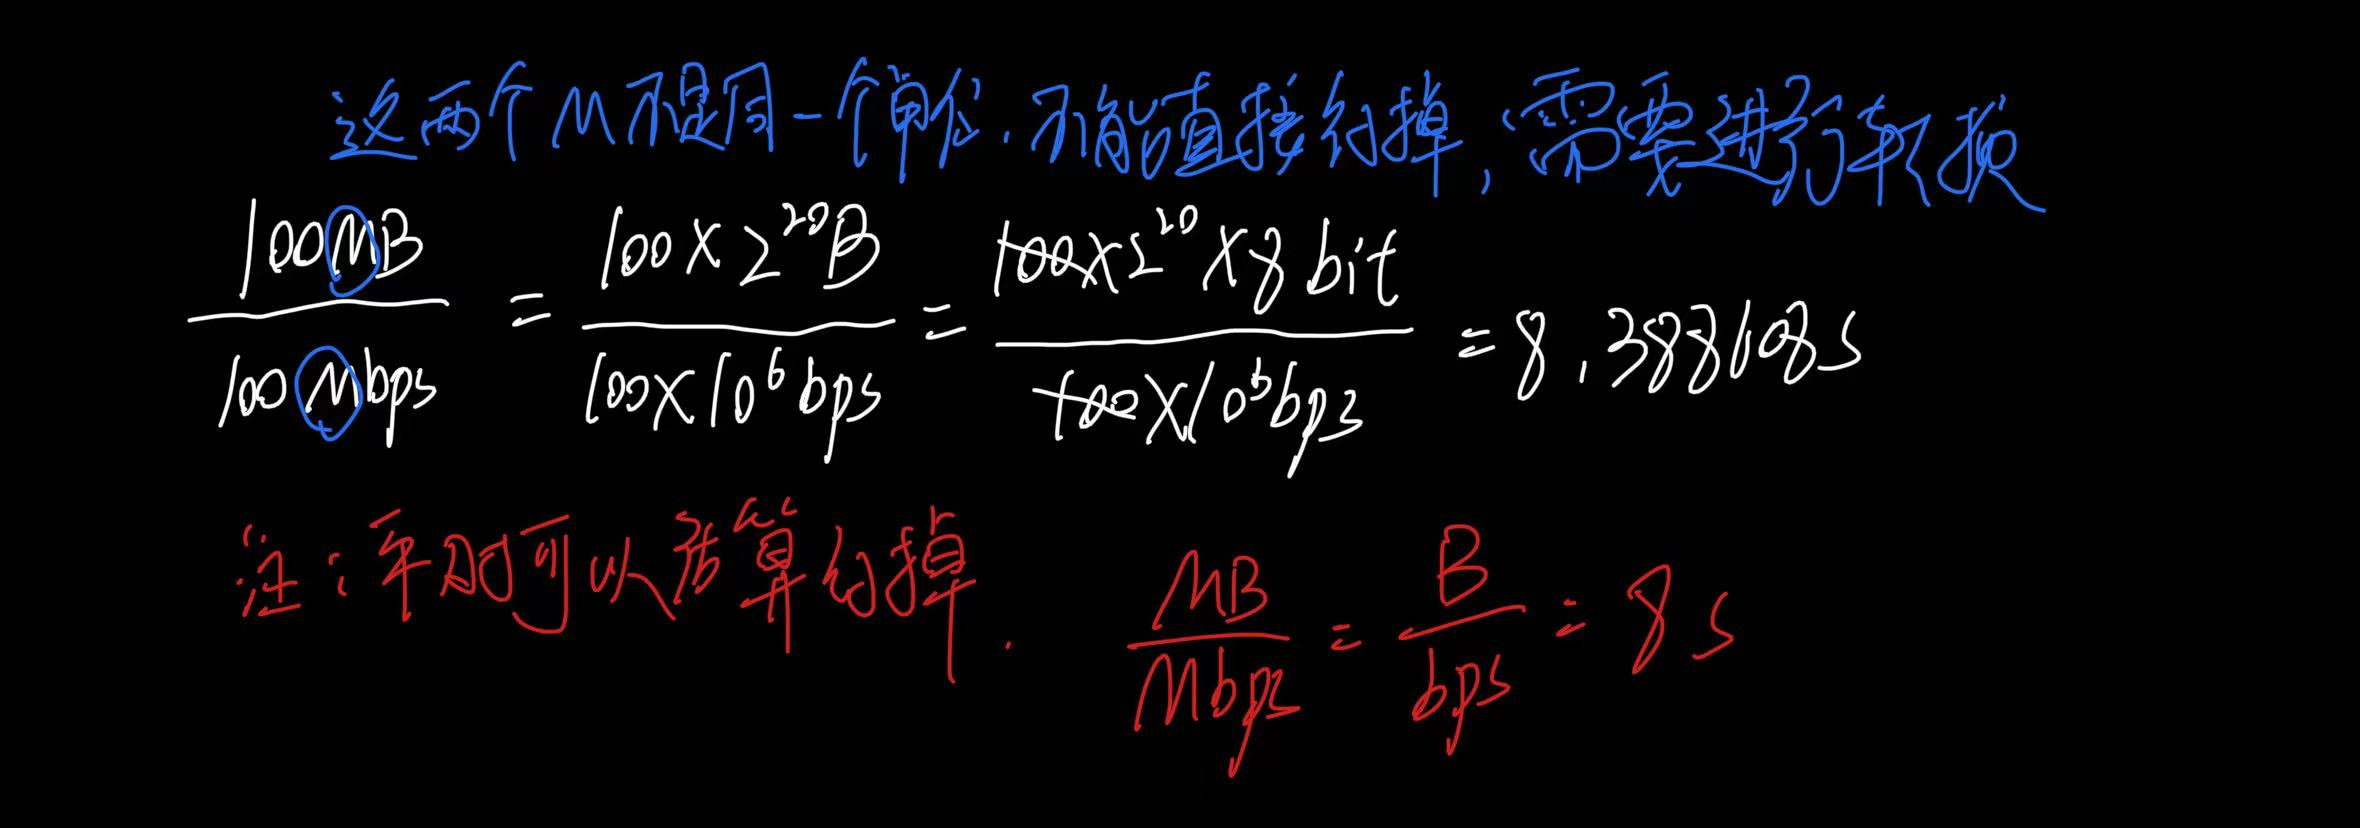 这两个M不是同一个单位.不能直接约掉,需要进行转换
100MB/100Mbps = 100×2^20B/100×10^6bps = 100×2^20×8bit/100×10^6bps = 8.388608s
注:平时可以估算约掉. MB/Mbps = B/bps = 8s